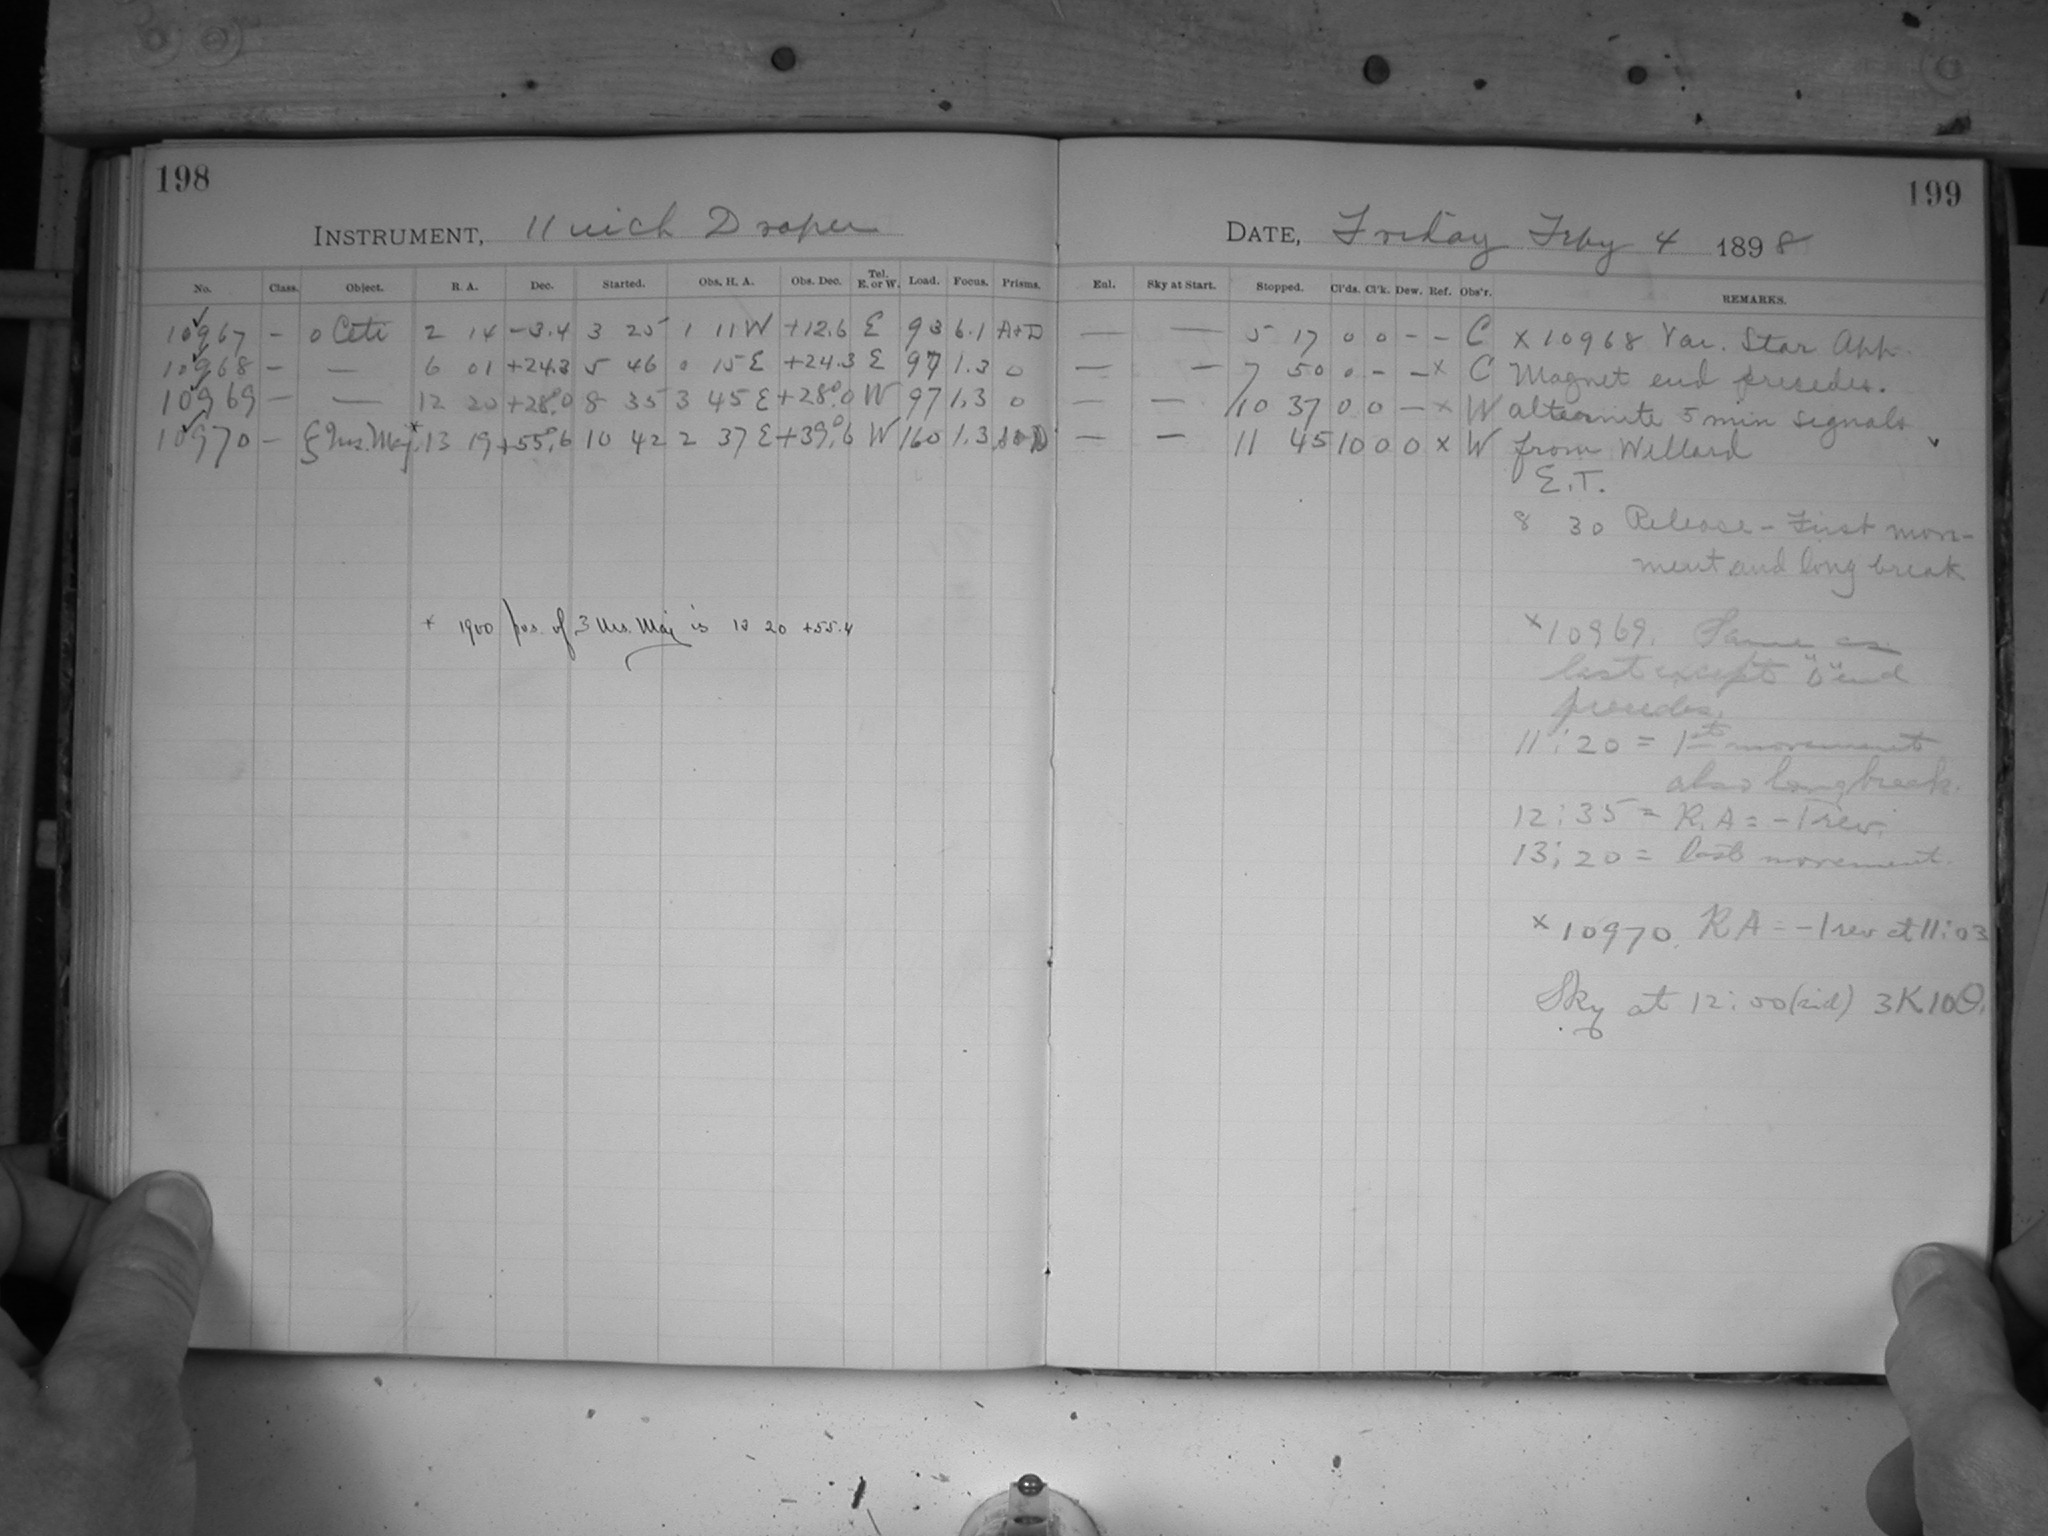 198
INSTRUMENT, 11 inch Draper
No. Class. Object. R. A. Dec. Started. Obs. H. A. Obs. Dec. Tel. E. or W. Load. Focus. Prisms.
10967 – o Ceti 2 14 –3.4 3 25 1 11 W +12.6 E 93 6.1 A+D
10968 – — 6 01 +24.3 5 46 0 15 E +24.3 E 97 1.3 0
10969 – — 12 20 +28.0 8 35 3 45 E +28.0 W 97 1.3 0
10970 – ξ Urs. Maj.* 13 19 +55.6 10 42 2 37 E +39.6 W 160 1.3
* 1900 pos. of ζ Urs. Maj is 13 20 +55.4
199
DATE, Friday Feby 4 1898
Enl. Sky at Start. Stopped. Cl'ds. Cl'k. Dew. Ref. Obs'r. REMARKS.
— — 5 17 0 0 – – C x 10968 Var. Star App.
— — 7 50 0 – – x C Magnet end precedes.
— — 10 37 0 0 – x W alternite 5 min signals
— — 11 45 10 0 0 x W from Willard
E.T.
8 30 Release – First mov-
ment and long break
x 10969. Same as
last except "O" end
precedes.
11:20 = 1st movement
also long break.
12:35 = R.A = –1 rev.
13:20 = last movement.
x 10970. RA = –1 rev at 11:03
Sky at 12:00 (sid) 3K10O.